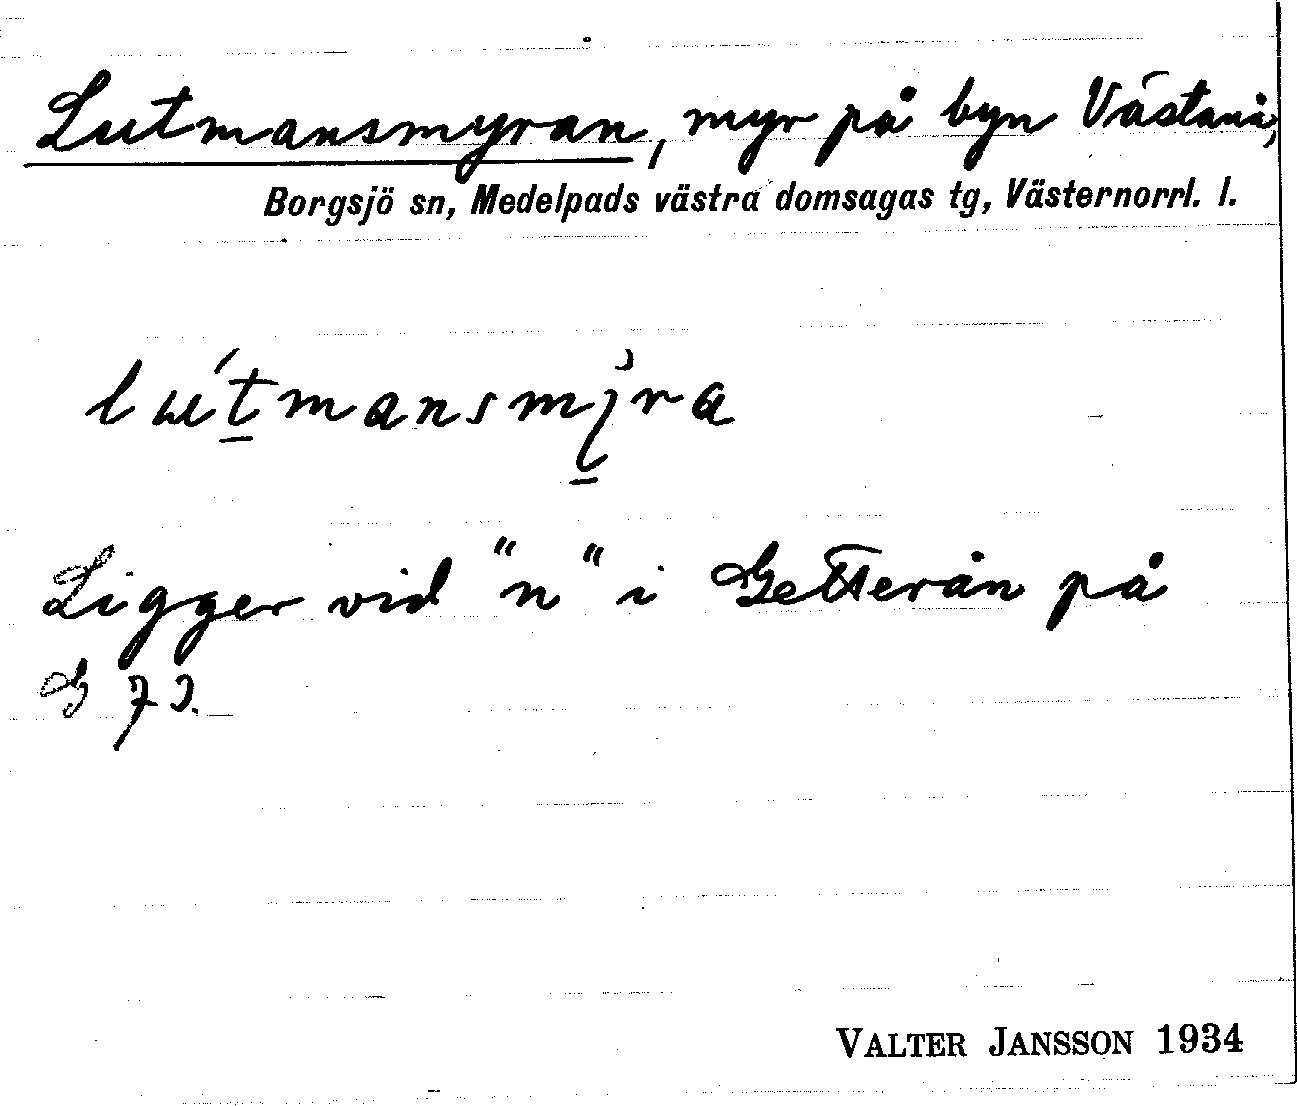 Lutmansmyran, myr på byn Västanå,
Borgsjö sn, Medelpads västra domsagas tg, Västernorrl. l.
Ligger vid "n" i Getterån på
G 73.
VALTER JANSSON 1934